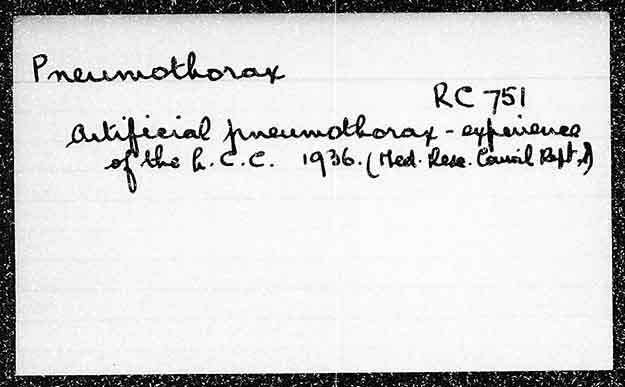 Pneumothorax
RC 751
Artificial pneumothorax - experience
of the L.C.C. 1936. (Med. Rese. Council Rept.)